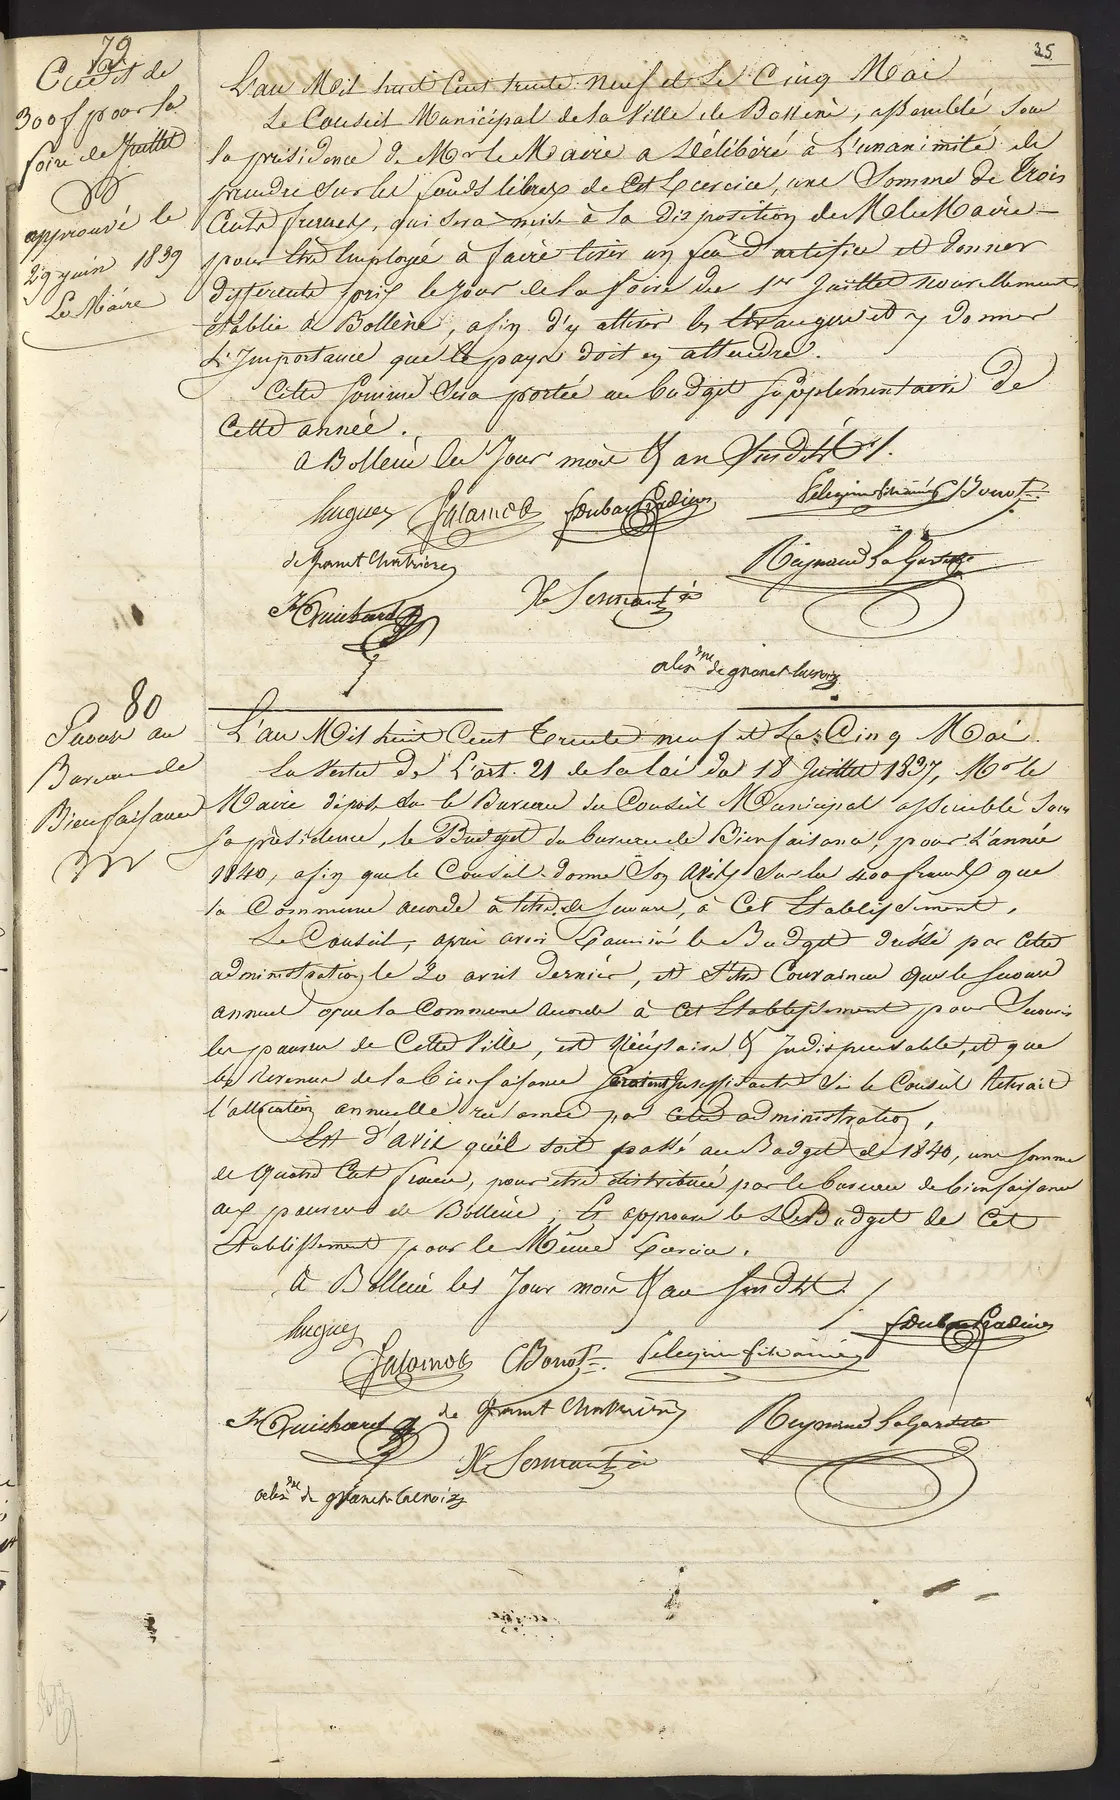 35
79
Crédit de
300f pour la
foire de Juillet
approuvé le
29 juin 1839
Le Maire
L'an Mil huit Cent trente neuf et Le Cinq Mai
Le Conseil Municipal de la Ville de Bollène, assemblé sous
la présidence de Mr le Maire a Délibéré à L'unanimité de
prendre sur les fonds libres de Cet Exercice, une Somme de Trois
Cents francs, qui sera mise à la Disposition de Mr le Maire
pour être Employée à faire tirer un feu d'artifice et donner
différents prix le Jour de la foire du 1er Juillet nouvellement
établie à Bollène, afin d'y attirer les étrangers et y donner
L'Importance que le pays doit en attendre.
Cette somme sera portée au budget supplémentaire de
Cette année.
A Bollène les Jour mois & an Susdits.
hugues Salamon Dubar Pradines Bonot
de granet Chabrières Reynaud La Gardette
Jh Guichard He Sermant
alexdre de granet-lacroix
80
Secours au
Bureau de
Bienfaisance
L'an Mil huit Cent Trente neuf et Le Cinq Mai
En Vertu de L'art. 21 de la loi du 18 Juillet 1837, Mr le
Maire dépose sur le Bureau du Conseil Municipal assemblé sous
sa présidence, le Budget du bureau de Bienfaisance, pour L'année
1840, afin que le Conseil donne Son Avis sur les 400 francs que
la Commune accorde à titre de Secours, à Cet Etablissement.
Le Conseil, après avoir Examiné le Budget dressé par Cette
administration le 20 avril dernier, et s'être Convaincu que le Secours
annuel que la Commune accorde à Cet Etablissement pour Secourir
les pauvres de Cette Ville, est Nécéssaire & Indispensable, et que
les Revenus de la bienfaisance seraient Insuffisants Si le Conseil Retirait
l'allocation annuelle réclamée par cette administration,
Est d'avis qu'il soit passé au Budget de 1840, une somme
de Quatre Cent francs, pour être distribuée par le bureau de bienfaisance
aux pauvres de Bollène; Et approuve le Budget de Cet
Etablissement pour le Même Exercice.
A Bollène les Jour mois & an susdits.
hugues Dubar Pradines
Salamon Bonot
Jh Guichard de granet Chabrières Reynaud La Gardette
He Sermant
alexdre de granet-lacroix